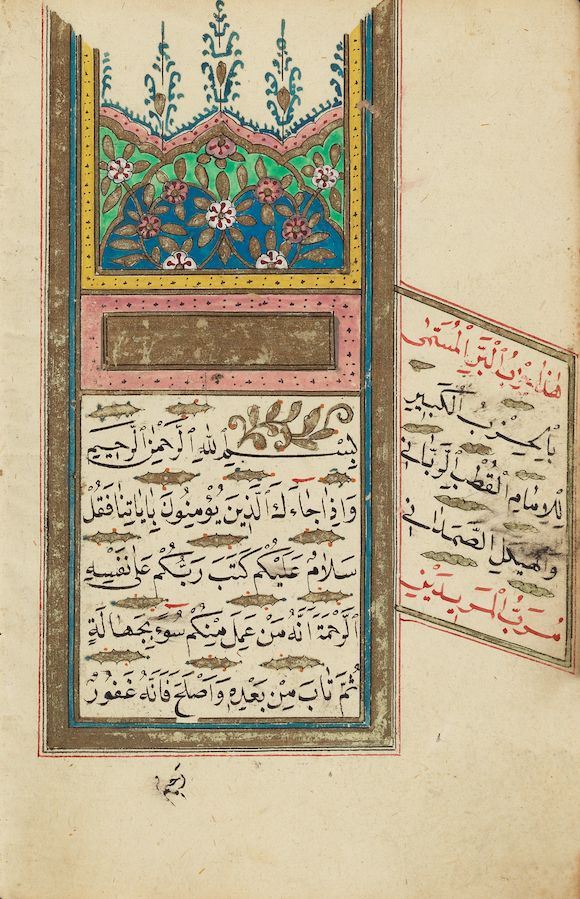 بِسْمِ اللهِ الرَّحْمٰنِ الرَّحِيمِ
وَاِذَا جَاءَكَ الَّذِينَ يُؤْمِنُونَ بِاٰيَاتِنَا فَقُلْ
سَلَامٌ عَلَيْكُمْ كَتَبَ رَبُّكُمْ عَلٰى نَفْسِهِ
الرَّحْمَةَ اَنَّهُ مَنْ عَمِلَ مِنْكُمْ سُوءً بِجَهَالَةٍ
ثُمَّ تَابَ مِنْ بَعْدِهِ وَاَصْلَحَ فَاَنَّهُ غَفُورٌ
رَحِيمٌ
هٰذَا حِزْبُ الْبَرِّ الْمُسَمّٰى
بِالْحِزْبِ الْكَبِيرِ
لِلْاِمَامِ الْقُطْبِ الرَّبَّانِي
وَالْهَيْكَلِ الصَّمَدَانِي
مُرَبِّ الْمُرِيدِينَ